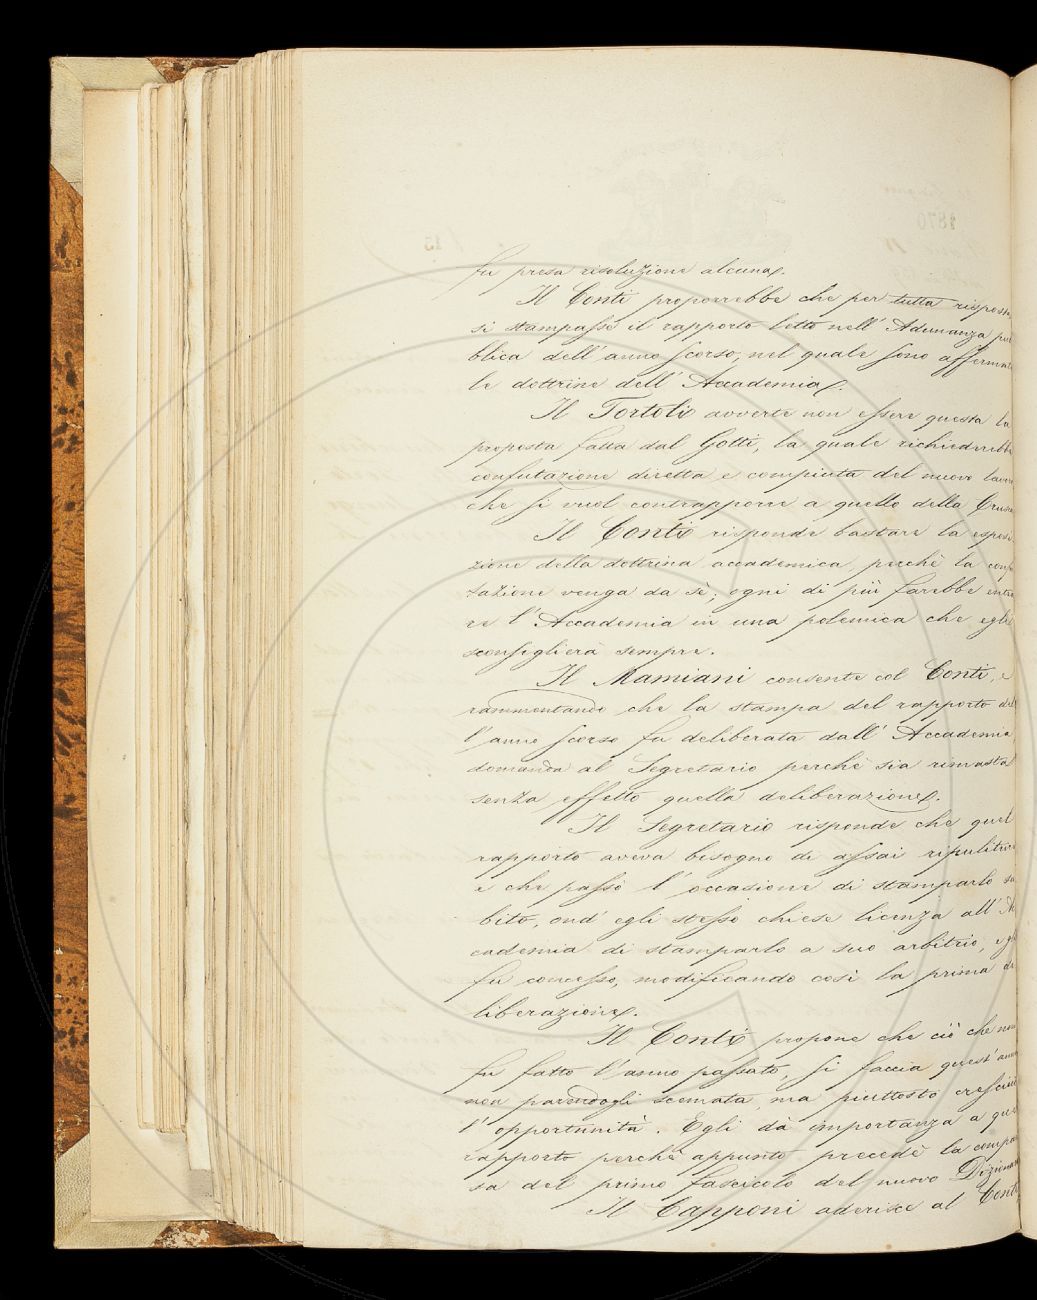 fu presa risoluzione alcuna.
Il Conti proporrebbe che per tutta risposta
si stampasse il rapporto letto nell' Adunanza pub
blica dell' anno scorso, nel quale sono affermate
le dottrine dell' Accademia.
Il Tortoli avverte non essere questa la
proposta fatta dal Gotti, la quale richiederebbe
confutazione diretta e compiuta del nuovo lavoro
che si vuol contrapporre a quello della Crusca
Il Conti risponde bastare la esposi
zione della dottrina accademica, perchè la confu
tazione venga da sè; ogni di più farebbe entra
re l' Accademia in una polemica che egli
sconsiglierà sempre.
Il Mamiani consente col Conti, e
rammentando che la stampa del rapporto del
l' anno scorso fu deliberata dall' Accademia,
domanda al Segretario perchè sia rimasta
senza effetto quella deliberazione.
Il Segretario risponde che quel
rapporto aveva bisogno di assai ripulitura
e che passò l' occasione di stamparlo su
bito, ond' egli stesso chiese licenza all' Ac
cademia di stamparlo a suo arbitrio, e gli
fu concesso, modificando così la prima de
liberazione.
Il Conti propone che ciò che non
fu fatto l' anno passato, si faccia quest' anno
non parendogli scemata, ma piuttosto cresciuta
l' opportunità. Egli dà importanza a quel
rapporto perchè appunto precedè la compar
sa del primo fascicolo del nuovo Dizionario
Il Capponi aderisce al Conti
1870
15